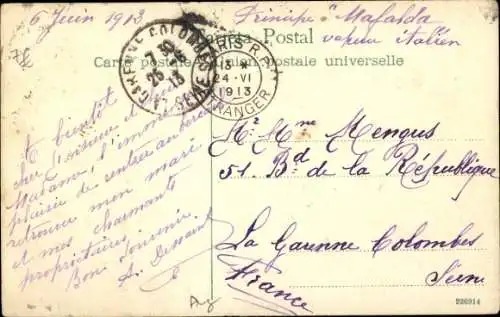 6 Juin 1913
"Principe Mafalda"
vapeur italien
Tarjeta Postal
Carte postale Union postale universelle
LA GARENNE-COLOMBES SEINE
7 30
25
13
PARIS R.P.
13 *
24 - VI
1913
ETRANGER
A bientôt
cher Monsieur et
Madame, l'immense
plaisir de rentrer au
retrouver mon mari
et mes charmants
propriétaires.
Bon Souvenir.
A.
Mr Mme Mengus
51. Bd de la République
La Garenne Colombes
Seine
France
226914